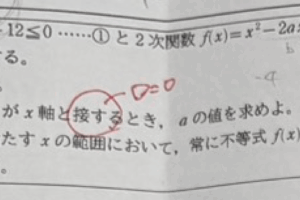 12≦0 ……① と 2 次関数 f(x)=x²-2a
る。
D=0
-4
が x 軸と接するとき, a の値を求めよ。
たす x の範囲において, 常に不等式 f(x)
。